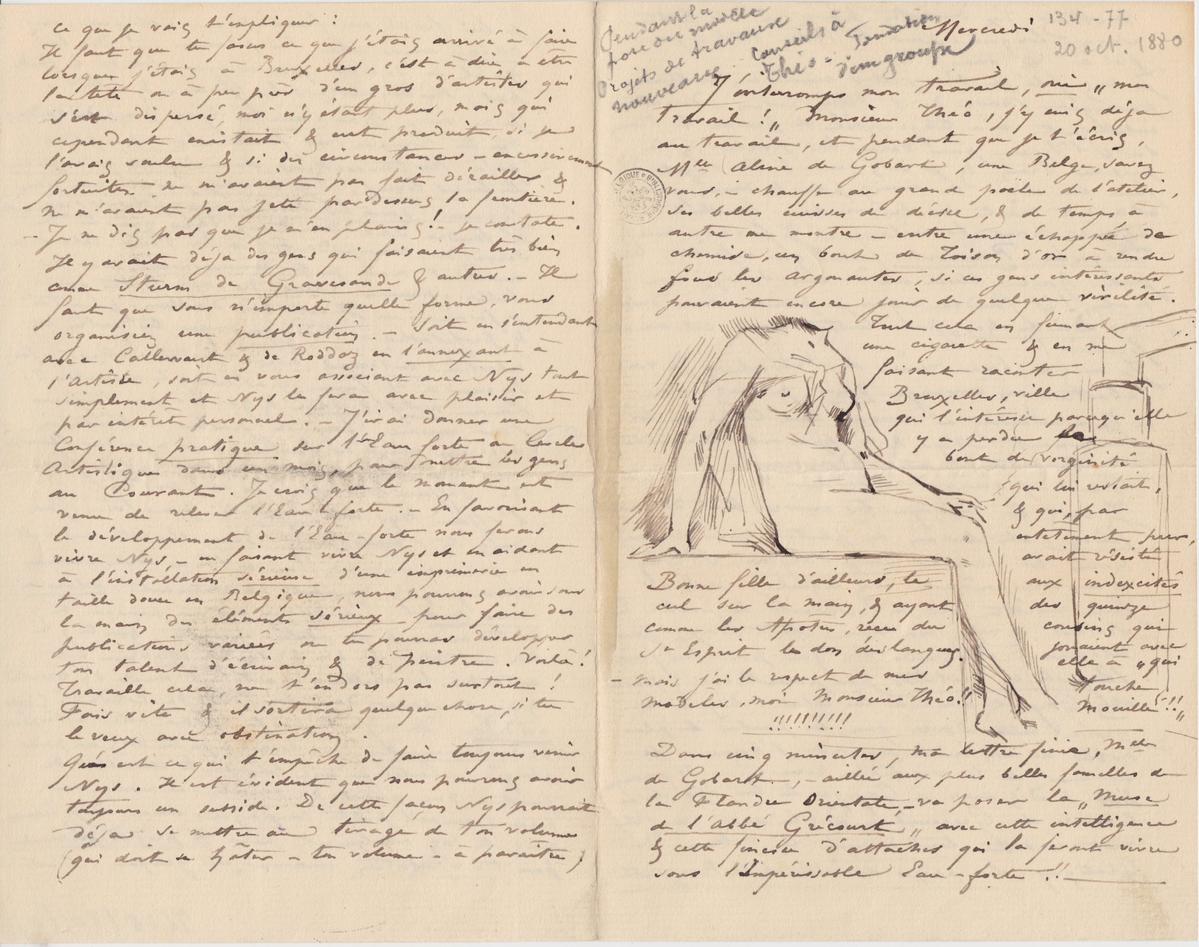 ce que je vais t'expliquer :
Il faut que tu fasses ce que j'étais arrivé à faire
lorsque j'étais à Bruxelles, c'est à dire à être
la tête ou à peu près d'un gros d'artistes qui
s'est dispersé, moi n'y étant plus, mais qui
cependant existait & eut produit, si je
l'avais voulu & si des circonstances – excessivement
fortuites ne m'avaient pas fait dérailler &
ne m'avaient pas jeté pardessus la fenêtre.
– Je ne dis pas que je m'en plains ! – je constate.
Il y avait déja des gens qui faisaient très bien
comme Sturm de Gravesande & autres. – Il
faut que sous n'importe quelle forme, vous
organisiez une publication – soit en s'entendant
avec Callewaert & de Roddaz en l'annexant à
l'Artiste, soit en vous associant avec Nys tout
simplement et Nys le fera avec plaisir et
par intérêt personnel. – J'irai donner une
Conférence pratique sur l'Eau forte au Cercle
Artistique dans un mois, pour mettre les gens
au Courant. Je crois que le moment est
venu de relever l'Eau-forte. – En favorisant
le développement de l'Eau-forte nous ferons
vivre Nys, – en faisant vivre Nys et en aidant
à l'installation sérieuse d'une imprimerie en
taille douce en Belgique, nous pourrons avoir sous
la main des éléments sérieux pour faire des
publications variées où tu pourras développer
ton talent d'écrivain & de peintre. Voilà !
Travaille cela, ne t'endors pas surtout !
Fais vite & il sortira quelque chose, si tu
le veux avec obstination.
Qu'est ce qui t'empêche de faire toujours venir
Nys. Il est évident que nous pourrons avoir
toujours un subside. De cette façon Nys pourrait
déja se mettre au tirage de ton volume
(qui doit se hâter – ton volume – à paraître)
Pendant la
pose du modèle
Projets de travaux
nouveaux
Conseils à
Théo – fondation
d'un groupe
Mercredi
134-77
20 oct. 1880
J'interromps mon travail, oui „ mon
travail ! „ Monsieur Théo, j'y suis déja
au travail, et pendant que je t'écris,
Mlle Aline de Gobart, une Belge, savez
vous, – chauffe au grand poêle de l'atelier,
ses belles cuisses de déesse, & de temps à
autre me montre – entre une échappée de
chemise, un bout de Toison d'or à rendre
fous les Argonautes, si ces gens intéressants
pouvaient encore jouir de quelque virilité.
Tout cela en fumant
une cigarette & en me
faisant raconter
Bruxelles, ville
qui l'intéresse parcequ'elle
y a perdu le
bout de virginité
qui lui restait,
& qui, par
entêtement pur,
avait résisté
aux index cités
des quinze
cousins qui
jouaient avec
elle à „ qui
touche
mouille „ !!
Bonne fille d'ailleurs, le
cul sur la main, & ayant
comme les Apôtres, reçu du
St Esprit le don des langues.
– mais j'ai le respect de mes
modèles, moi Monsieur Théo !!
!!!!!!!!!
Dans cinq minutes, ma lettre finie, Melle
de Gobart, – alliée aux plus belles familles de
la Flandre Orientale, – va poser la „ Muse
de l'Abbé Grécourt „ avec cette intelligence
& cette finesse d'attaches qui la feront vivre
sous l'impérissable Eau-forte !! –